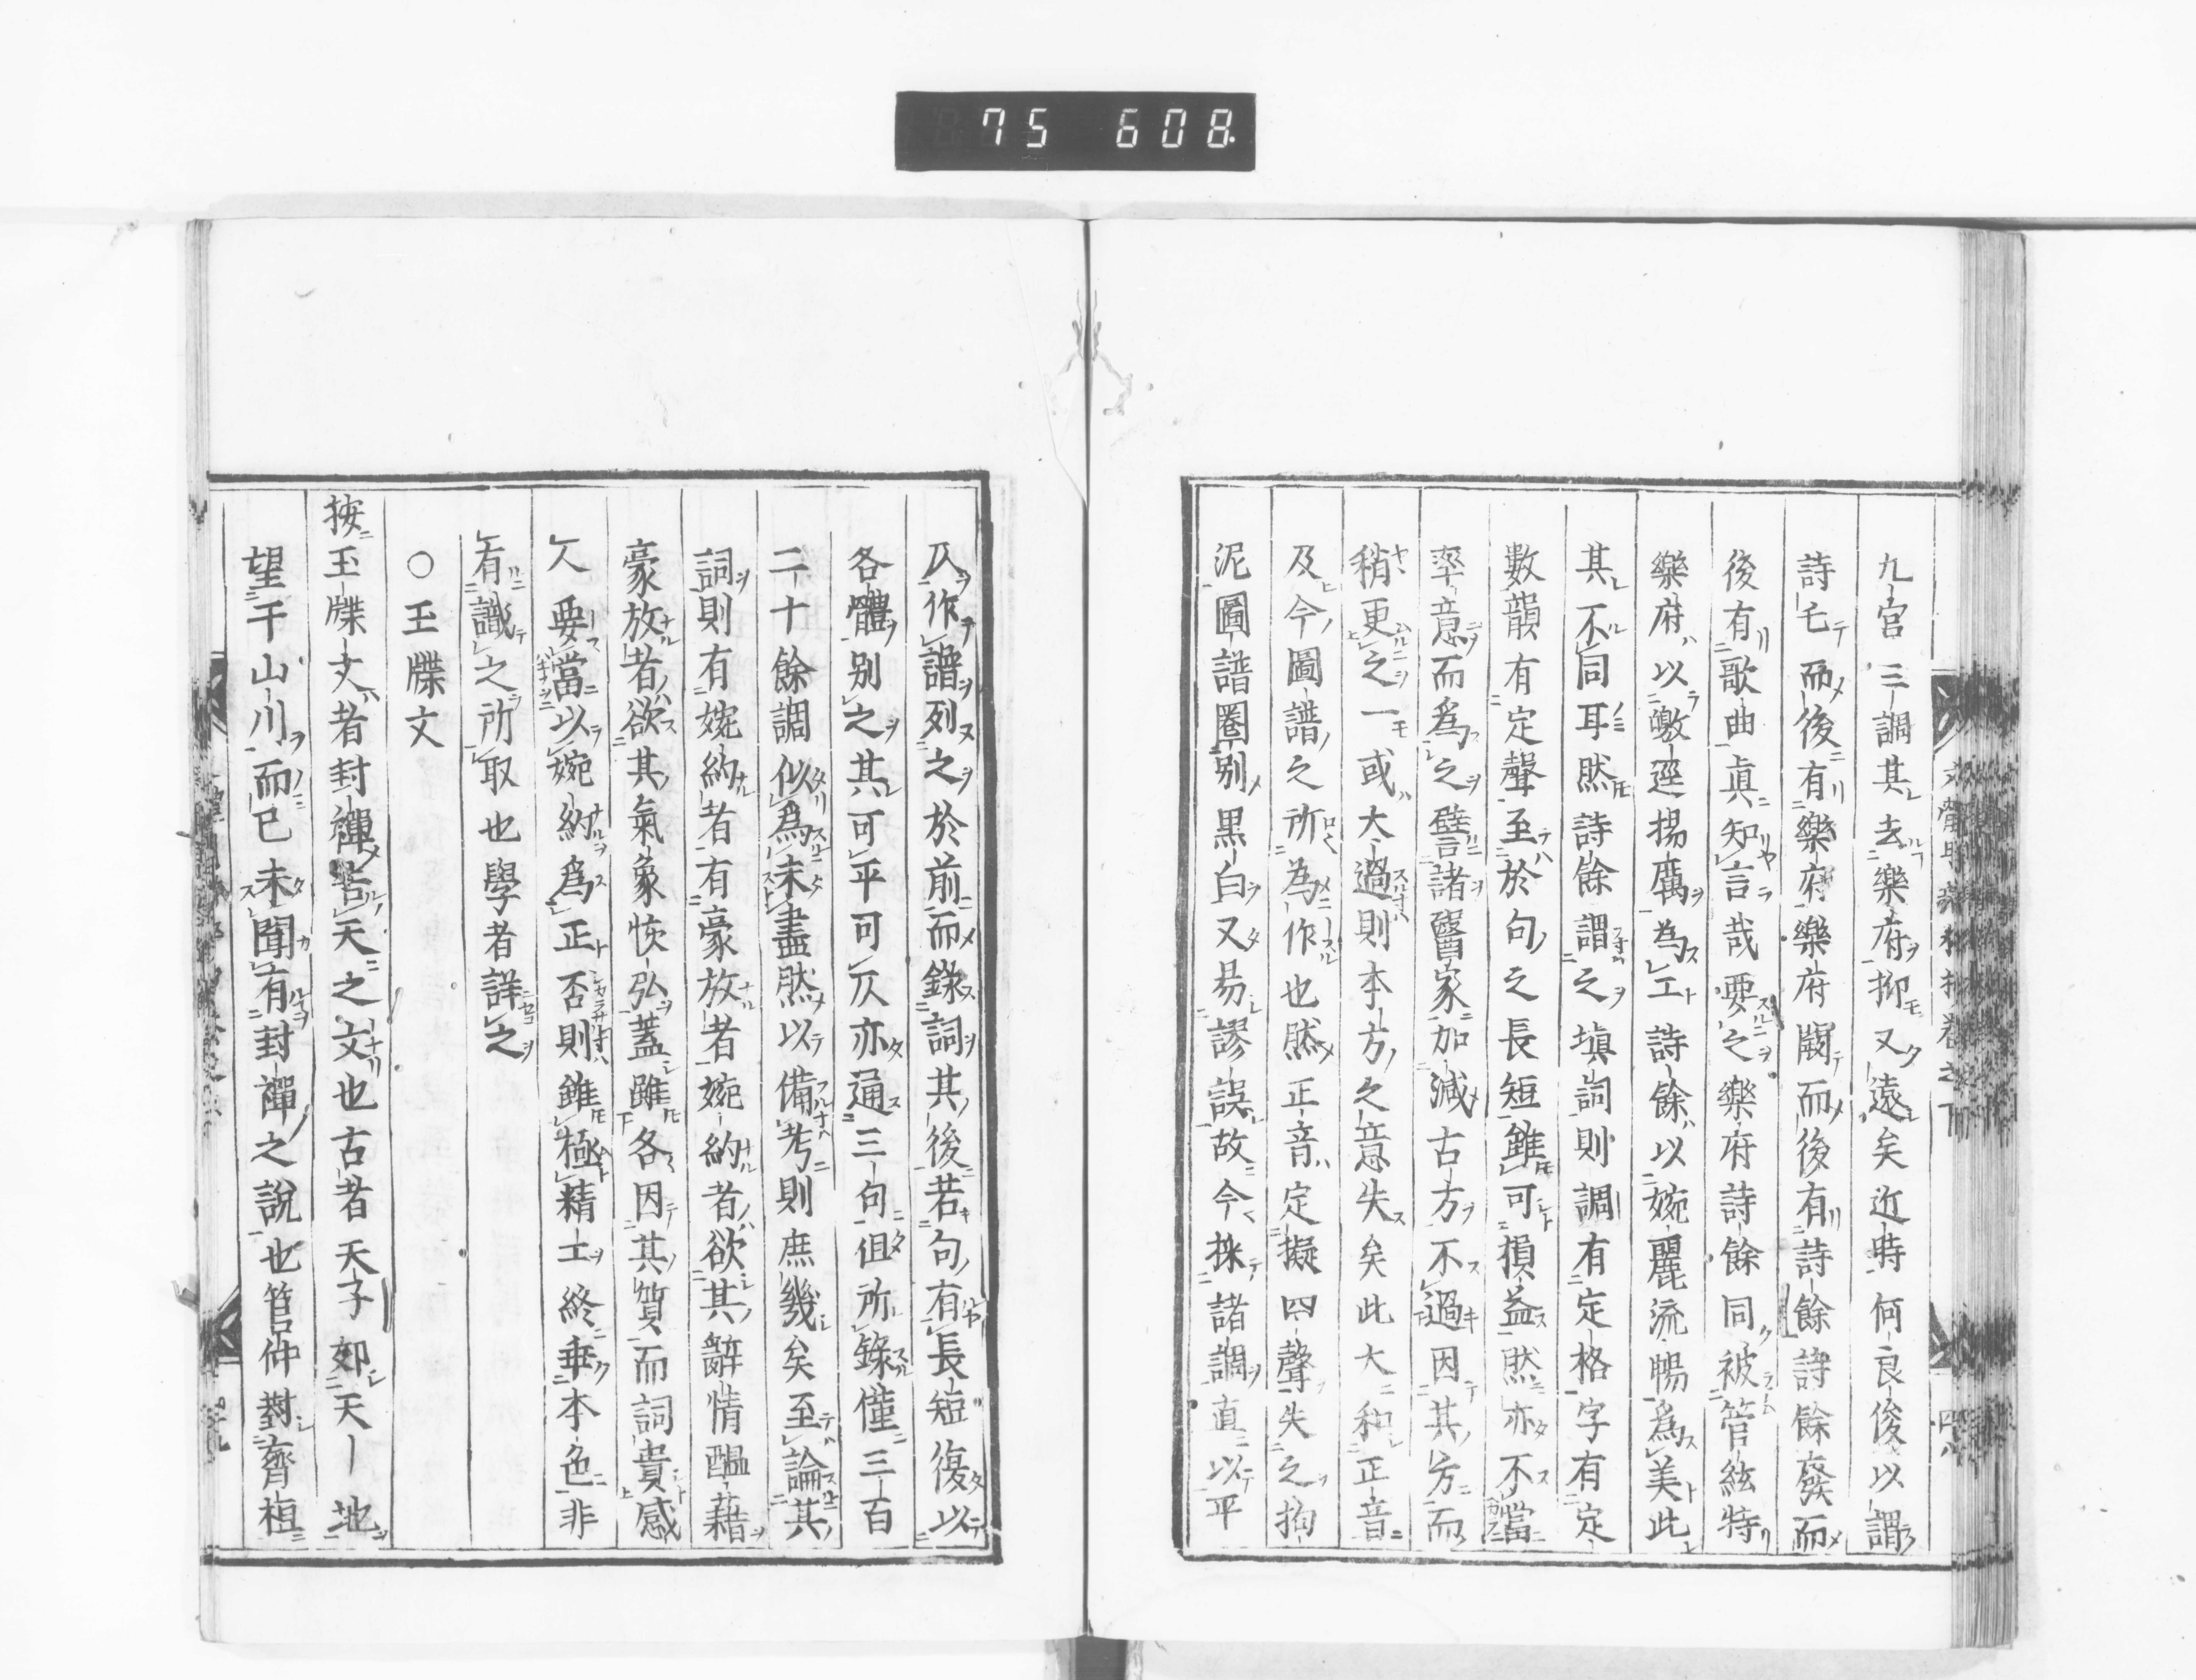 75 608
九宮三調其去樂府抑又遠矣近時何良俊以謂
詩亡而後有樂府樂府闕而後有詩餘詩餘廢而
後有歌曲眞知言哉要之樂府詩餘同被管絃特
樂府以皦逕揚厲為工詩餘以婉麗流暢爲美此
其不同耳然詩餘謂之塡詞則調有定格字有定
數韻有定聲至於句之長短雖可損益然亦不當
率意而爲之譬諸醫家加減古方不過因其方而
稍更之一或大過則本方之意失矣此大和正音
及今圖譜之所為作也然正音定擬四聲失之拘
泥圖譜圏別黒白又易謬誤故今採諸調直以平
仄作譜列之於前而錄詞其後若句有長短復以
各體別之其可平可仄亦通三句但所錄僅三百
二十餘調似爲未盡然以備考則庶幾矣至論其
詞則有婉約者有豪放者婉約者欲其辭情醞藉
豪放者欲其氣象恢弘蓋雖各因其質而詞貴感
人要當以婉約爲正否則雖極精工終乖本色非
有識之所取也學者詳之
○玉牒文
按玉牒文者封禪告天之文也古者天子郊天一地
望千山川而已未聞有封禪之說也管仲對齊桓